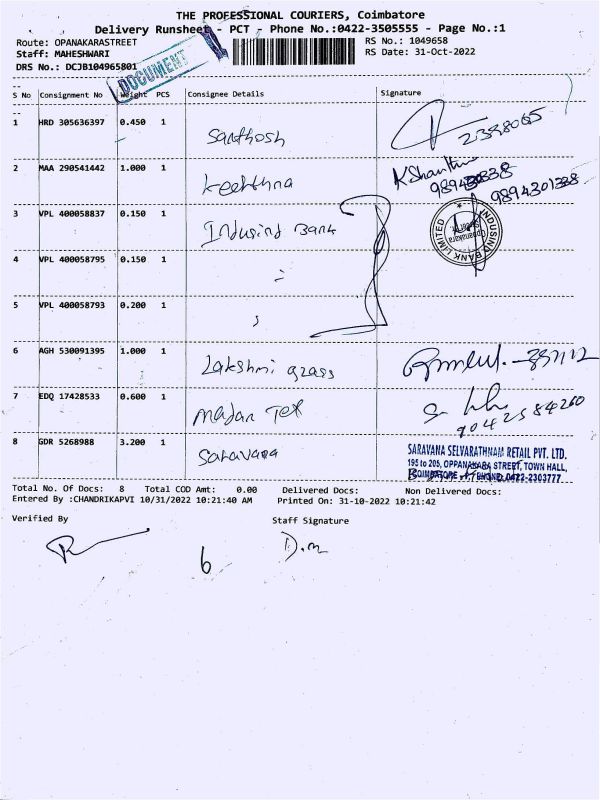 THE PROFESSIONAL COURIERS, Coimbatore
Delivery Runsheet - PCT - Phone No.:0422-3505555 - Page No.:1
Route: OPANAKARASTREET
Staff: MAHESHWARI
DRS No.: DCJB104965801
DOCUMENT
RS No.: 1049658
RS Date: 31-Oct-2022
S No Consignment No Weight PCS Consignee Details Signature
1 HRD 305636397 0.450 1 Santhosh 2398065
2 MAA 290541442 1.000 1 Keerthna K Shanthi
9894301338
3 VPL 400058837 0.150 1 Indusind Bank
INDUSIND BANK LIMITED
4 VPL 400058795 0.150 1 "
5 VPL 400058793 0.200 1
6 AGH 530091395 1.000 1 Lakshmi grass
7 EDQ 17428533 0.600 1 Madan Tex
9042584260
8 GDR 5268988 3.200 1 Saravana
SARAVANA SELVARATHNAM RETAIL PVT. LTD.
195 to 205, OPPANAKARA STREET, TOWN HALL,
COIMBATORE 0422-2303777
Total No. Of Docs: 8 Total COD Amt: 0.00 Delivered Docs: Non Delivered Docs:
Entered By :CHANDRIKAPVI 10/31/2022 10:21:40 AM Printed On: 31-10-2022 10:21:42
Verified By Staff Signature
6 D.m